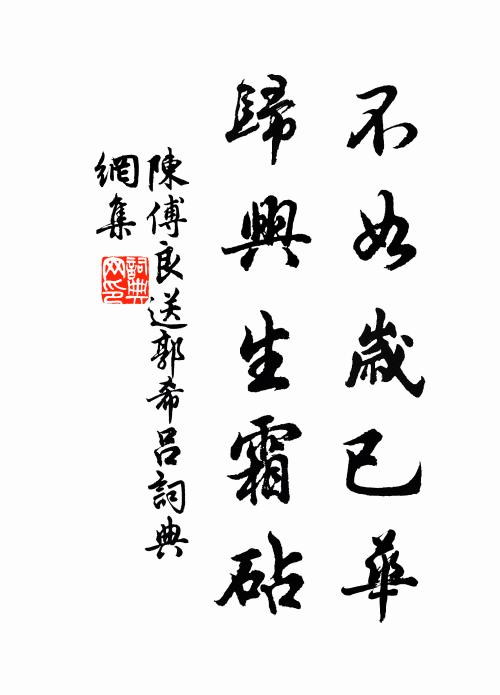 不如歲已華
歸興生霜砧
陳傅良送郭希呂詞典
網集
詞典網印